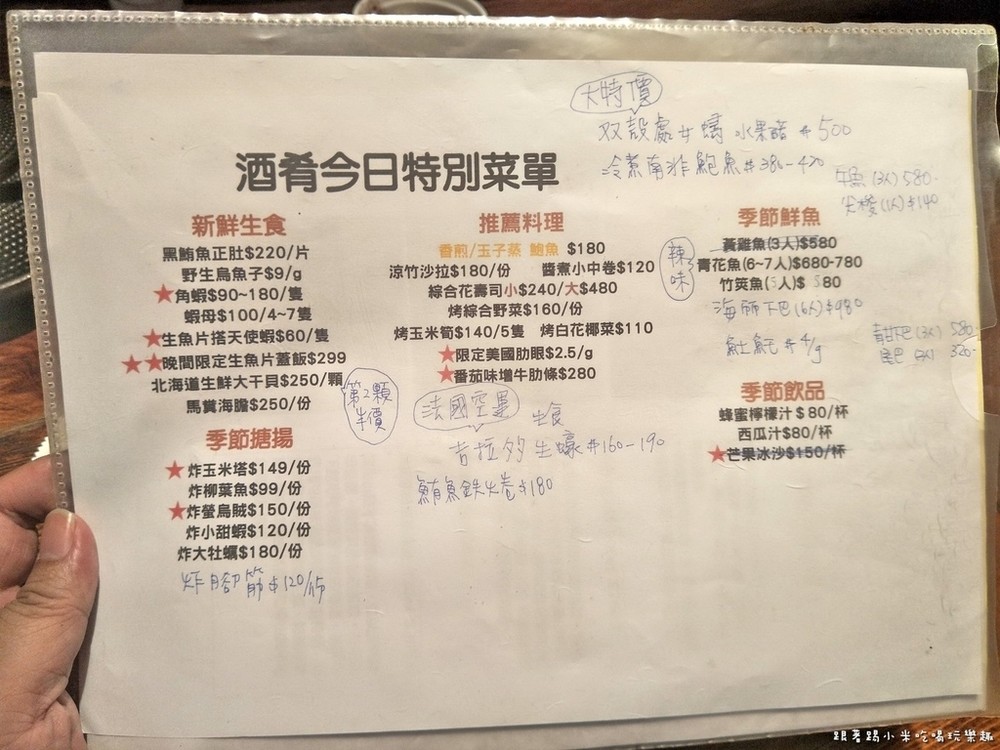 大特價
双殼處女蟳 水果醋 $500
冷煮南非鮑魚 $380-420
午魚(3人)580-
(1人)$140
酒肴今日特別菜單
新鮮生食
黑鮪魚正肚$220/片
野生烏魚子$9/g
★角蝦$90~180/隻
蝦母$100/4~7隻
★生魚片搭天使蝦$60/隻
★★晚間限定生魚片蓋飯$299
北海道生鮮大干貝$250/顆
第2顆
半價
馬糞海膽$250/份
季節搪揚
★炸玉米塔$149/份
炸柳葉魚$99/份
★炸螢烏賊$150/份
炸小甜蝦$120/份
炸大牡蠣$180/份
炸腳筋$120/份
推薦料理
香煎/玉子蒸 鮑魚 $180
涼竹沙拉$180/份 醬煮小中卷$120
綜合花壽司小$240/大$480
烤綜合野菜$160/份
烤玉米筍$140/5隻 烤白花椰菜$110
★限定美國肋眼$2.5/g
★番茄味增牛肋條$280
法國空運 生食
吉拉多生蠔 $160-190
鮪魚鉄火卷$180
季節鮮魚
黃雞魚(3人)$580
辣味
青花魚(6~7人)$680-780
竹筴魚(5人)$580
海師下巴(6人)$980
魠 $4/g
青甘下巴(3人)580-
尾巴 320-
季節飲品
蜂蜜檸檬汁$80/杯
西瓜汁$80/杯
★芒果冰沙$150/杯
跟著踢小米吃喝玩樂趣